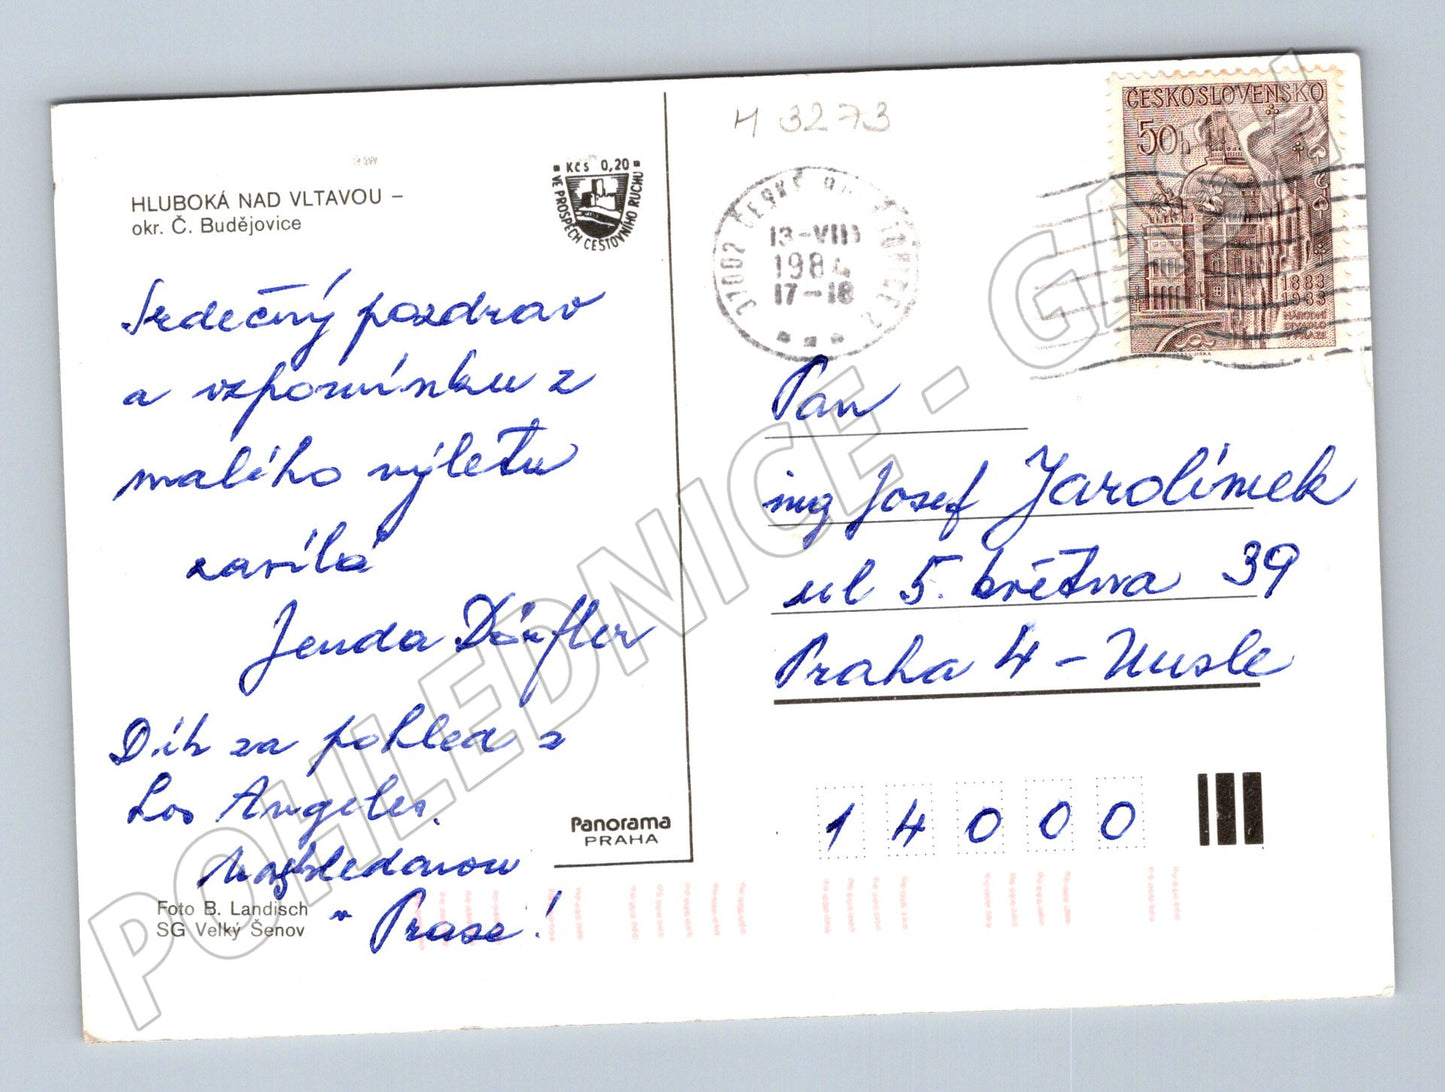 HLUBOKÁ NAD VLTAVOU –
okr. Č. Budějovice
Kčs 0,20
VE PROSPĚCH CESTOVNÍHO RUCHU
Srdečný pozdrav
a vzpomínku z
malého výletu
zasílá
Jenda Dörfler
Dík za pohled z
Los Angeles.
Nashledanou
v Praze!
Foto B. Landisch
SG Velký Šenov
Panorama
PRAHA
M 3273
13-VIII
1984
17-18
ČESKOSLOVENSKO
50h
1883
1983
NÁRODNÍ
DIVADLO
PRAZE
Pan
ing Josef Jarolímek
ul 5. května 39
Praha 4 – Nusle
14000
POHLEDNICE - GALERI